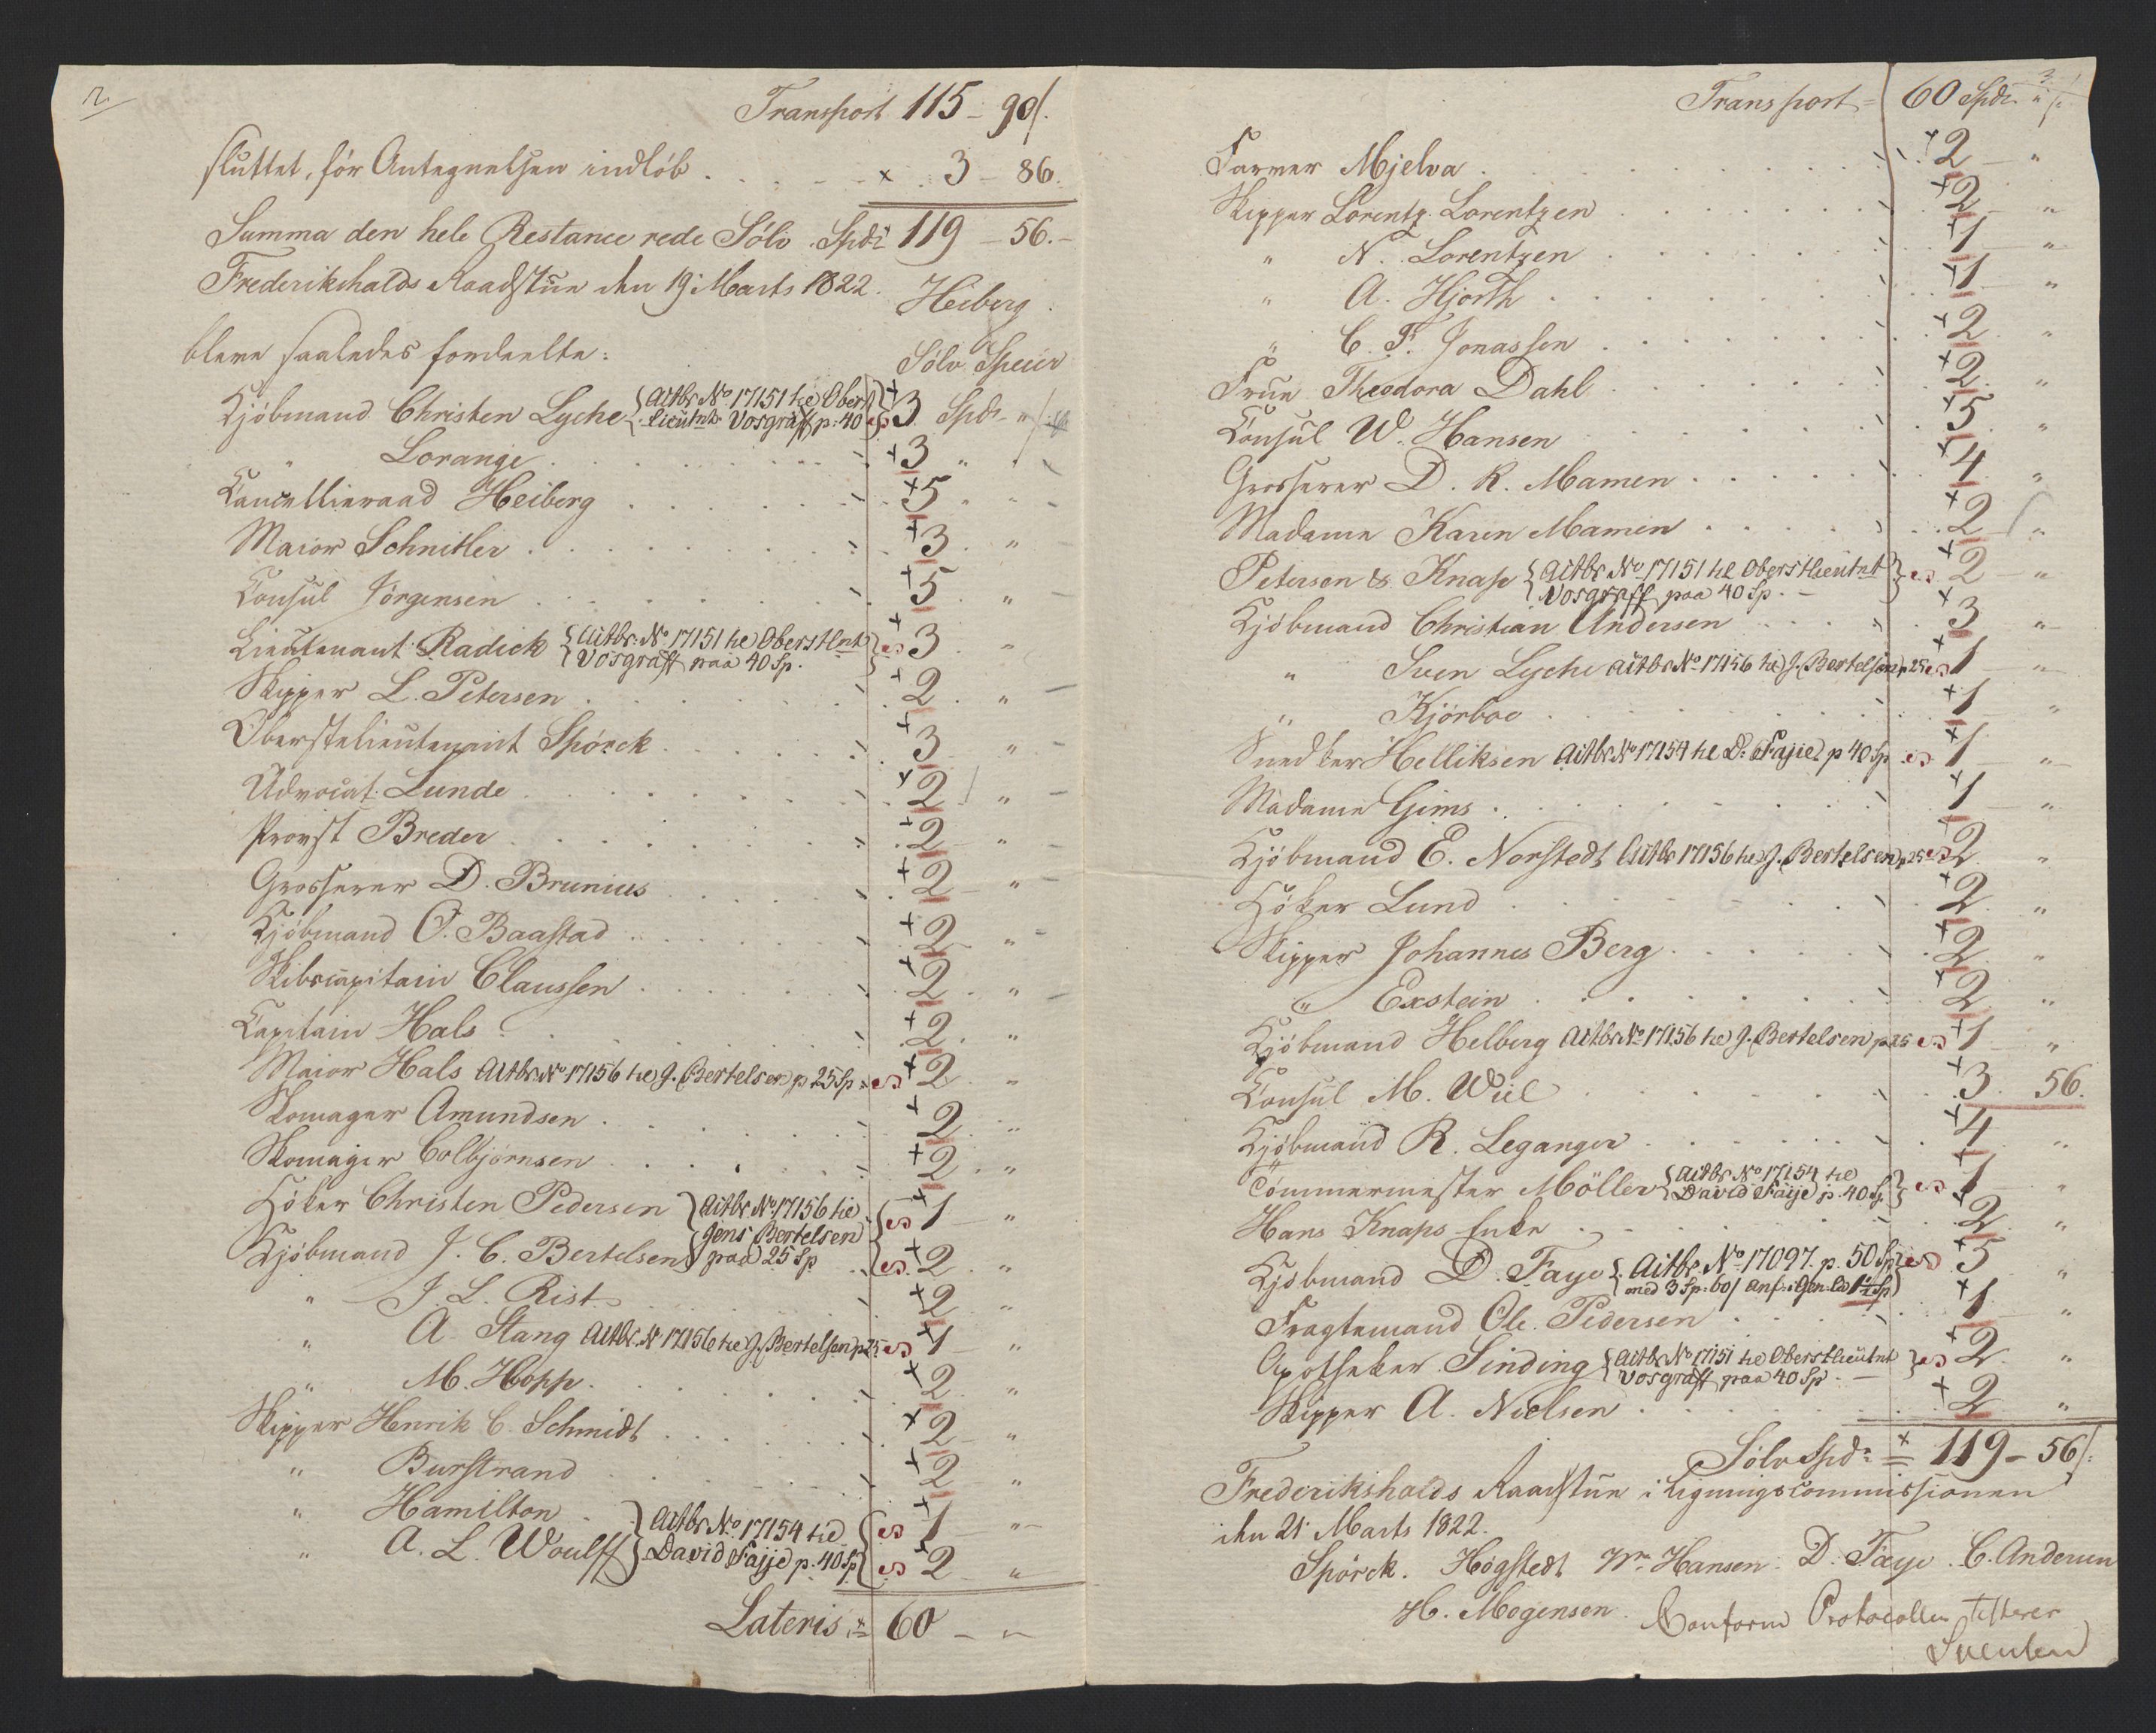 2.
Transport 115 - 90/.
sluttet, før Antegnelsen indløb . . . . x . 3 - 86.
Summa den hele Restance rede Sølv. Spd. 119 - 56. -
Frederikshalds Raadstue den 19 Marts 1822.
Heiberg.
bleve saaledes fordeelte:
Sølv Specier
Kjøbmand Christen Lyche {Aitbr No 17151 he Oberst lieutnt Vosgraff p. 40 3 Spd. "
" Lorange . . . 3 "
Cancellieraad Heiberg . . . 5 "
Maior Schnitler . . . 3 "
Consul Jörgensen . . . 5 "
Lieutenant Radick {Aitbr. No 17151 he Oberstlnt Vosgraff paa 40 Sp. } 3 "
Skipper L. Petersen . . . 2 "
Oberstelieutenant Spörck . . . 3 "
Advocat Lunde . . . 2 "
Provst Breder . . . 2 "
Grosserer D. Brunius . . . 2 "
Kjøbmand O. Baastad . . . 2 "
Skibscapitain Claussen . . . 2 "
Capitain Hals . . . 2 "
Maior Hals Aitbr No 17156 he J. Bertelsen p 25 Sp 2 "
Skomager Amundsen . . . 2 "
Skomager Colbjørnsen . . . 2 "
Høker Christen Pedersen } Aitbr No 17156 he { 1 "
Kjøbmand J. C. Bertelsen } Jens Bertelsen paa 25 Sp { 2 "
" J L. Rist . . . 2 "
" A. Stang Aitbr. No 17156 he J. Bertelsen p 25 1 "
" M. Hopp . . . 2 "
Skipper Henrik C. Schmidt . . . 2 "
" Burstrand . . . 2 "
" Hamilton } Aitbr No 17154 he { 1 "
" A. L. Woulff } David Fajje p. 40 Sp { 2 "
Lateris = 60 - "
3.
Transport = 60 Spd. " /.
Farver Mjelva . . . 2 "
Skipper Lorentz Lorentzen . . . 2 "
" N. Lorentzen . . . 1 "
" A. Hjorth . . . 1 "
" C. F. Jonassen . . . 2 "
Frue Theodora Dahl . . . 2 "
Consul W. Hansen . . . 5 "
Grosserer D. R. Mamen . . . 4 "
Madame Karen Mamen . . . 2 "
Peterson & Knap {Aitbr No 17151 he Oberstlieutnt Vosgraff paa 40 Sp. - } 2 "
Kjøbmand Christian Andersen . . . 3 "
" Sven Lyche Aitbr No 17156 he J. Bertelsen p 25 1 "
" Kjörboe . . . 1 "
Snedker Helliksen Aitbr No 17154 he D. Fajje p 40 Sp 1 "
Madame Gims . . . 1 "
Kjøbmand E. Norstedt Aitbr 17156 he J. Bertelsen p 25 2 "
Høker Lund . . . 2 "
Skipper Johannes Berg . . . 2 "
" Exstein . . . 2 "
Kjøbmand Helberg Aitbr No 17156 he J. Bertelsen p 25 1 "
Consul M. Wiel . . . 3 56.
Kjøbmand R. Leganger . . . 4 "
Tømmermester Möller {Aitbr No 17154 he David Fajje p. 40 Sp. } 1 "
Hans Knaps Enke . . . 2 "
Kjøbmand D. Faye {Aitbr. No 17097. p. 50 Sp med 3 Sp. 60/ 5 "
Fragtemand Ole Pedersen . . . 1 "
Apotheker Sinding {Aitbr No 17151 he Oberstlieutnt Vosgraff paa 40 Sp. - } 2 "
Skipper A. Nielsen . . . 2 "
Sølv Spd. = 119 - 56/.
Frederikshalds Raadstue i Ligningscommissionen
den 21 Marts 1822.
Spörck. Høgstedt Wm Hansen. D. Faye. C. Andersen
H. Mogensen.
Conform Protocollen testerer